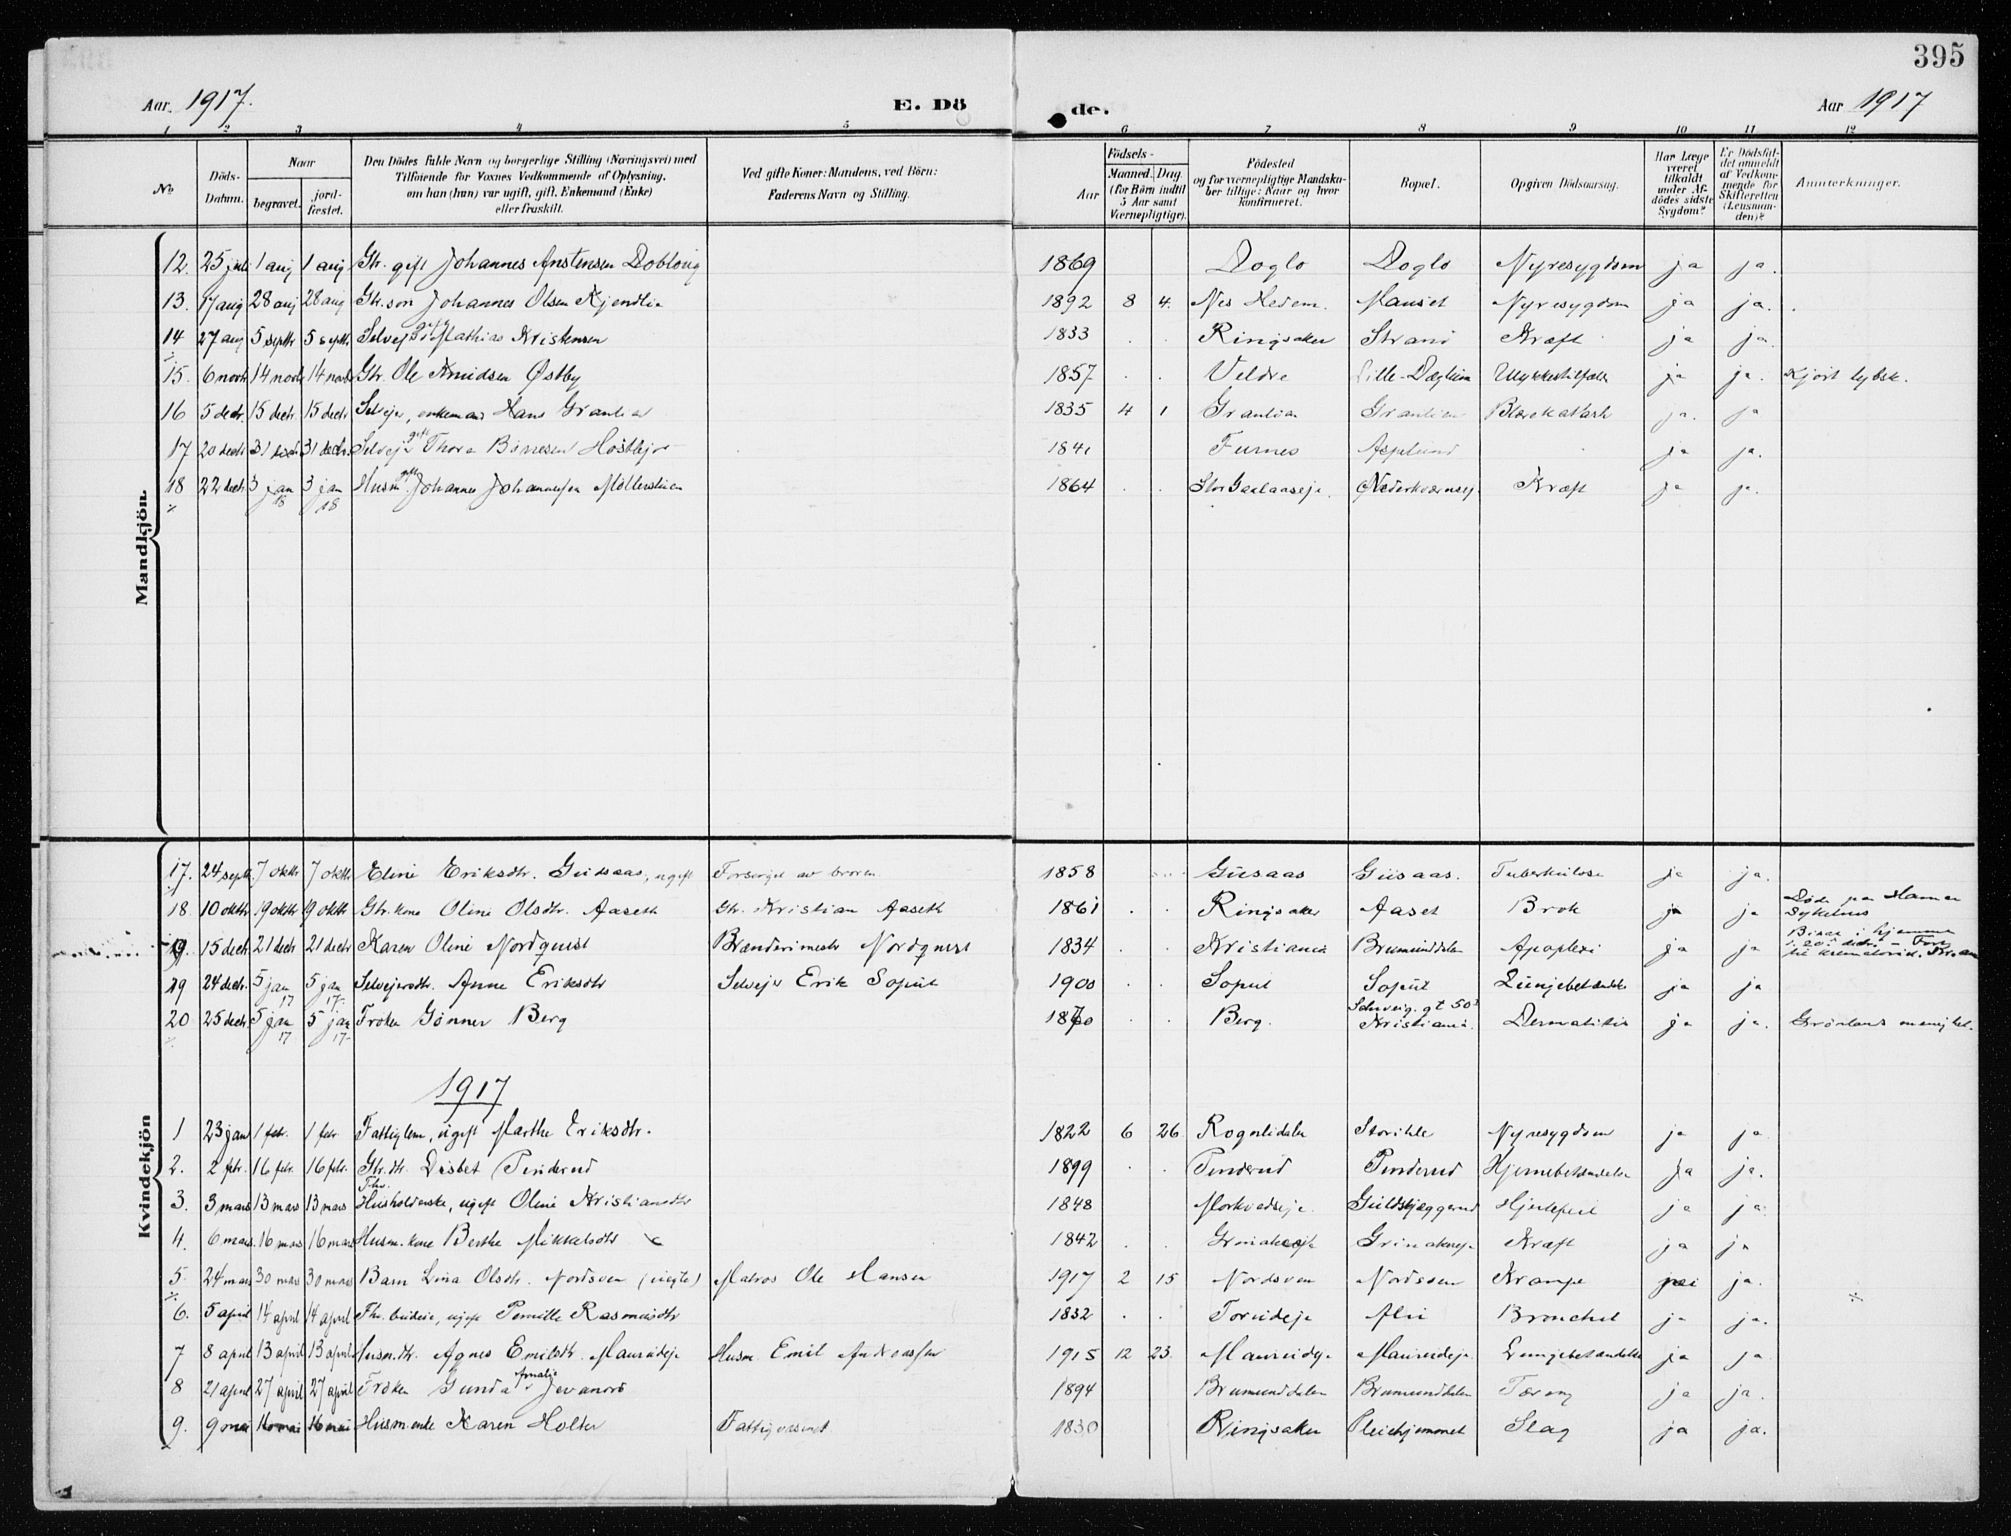 395
Aar 1917. E. Dö de. Aar 1917
1 2 3 4 5 6 7 8 9 10 11 12
No. Döds-Datum. Naar begravet. jord-fæstet. Den Dödes fulde Navn og borgerlige Stilling (Næringsvei) med Tilföiende for Voxnes Vedkommende af Oplysning, om han (hun) var ugift, gift, Enkemand (Enke) eller fraskilt. Ved gifte Koner: Mandens, ved Börn: Faderens Navn og Stilling. Födsels- Aar Maaned. Dag. (for Börn indtil 5 Aar samt Værnepligtige). Födested og for værnepligtige Mandskaber tillige: Naar og hvor konfirmeret. Bopæl. Opgiven Dödsaarsag. Har Læge været tilkaldt under Afdödes sidste Sygdom? Er Dödsfaldet anmeldt af Vedkommende for Skifteretten (Lensmanden)? Anmærkninger.
Mandkjön.
12. 25 juli 1 aug 1 aug Gbr. gift Johannes Anstensen Dobloug 1869 Doglo Doglo Nyresygdom ja ja.
13. 17 aug 28 aug 28 aug Gbr.søn Johannes Olsen Kjendlie 1892 8 4. Nes Hedem. Mauset Nyresygdom ja ja.
14 27 aug 5 septr 5 septr Selvejer Mathias Kristensen 1833 . . Ringsaker Strand Kræft ja ja.
15. 6 novbr 14 novbr 14 novbr Gbr. Ole Knudsen Østby 1857 . . Veldre Lille-Dæhlin Ulykkestilfælde ja ja.
16 5 decbr 15 decbr 15 decbr Selvejer, enkemand Hans Granlien 1835 4 1 Granlien Granlien Blærekatarh ja. ja
17 20 decbr 31 decbr 31 decbr. Selvejer gift Thore Børresen Høstbjør 1841 Furnes Aspelund . ja ja.
18 22 decbr 3 jan 18 3 jan 18 Husm. gift Johannes Johannessen Möllerstuen 1864 . . Kræft ja ja.
Kvindekjön
17. 24 septr 7 oktbr 7 oktbr Eline Eriksdtr. Gudsaas, ugift Forsørget av broren 1858 Gusaas Gusaas. Tuberkulose ja ja.
18 10 oktbr 19 oktbr 19 oktbr Gbr.kone Oline Olsdtr. Aaseth Gbr. Kristian Aaseth 1861 . . Ringsaker Aaset Brok ja ja Døde paa Hamar Sykehus
19. 15 decbr 21 decbr 21 decbr Karen Oline Nordquist Brænderimestr Nordquist 1834 . . Kristiania Brumunddalen Apoplexi ja ja
19 24 decbr. 5 jan 17 5 jan 17 Selvejersdtr. Anne Eriksdtr Selvejer Erik Soput 1900 . . Soput Soput Lungebetændelse ja ja
20 25 decbr 5 jan 17 5 jan 17 Frøken Gönner Berg 1870 . . Berg. Schweig.gt 50 Kristiania. Dermatitis ja ja. Grønlands menighet.
1917
1 23 jan 1 febr. 1 febr Fattiglem, ugift Marthe Eriksdtr. 1822 6 26 Rognlidalen Storihle Nyresygdom ja ja.
2. 2 febr. 16 febr. 16 febr. Gbr.dtr. Lisbet Tinderud 1899 . . Tinderud Tinderud Hjernebetændelse ja ja.
3. 3 mars 13 mars 13 mars Husholderske, ugift Oline Kristiansdtr 1848 Morkvedseje. Guldskjæggerud Hjertefeil ja ja.
4. 6 mars 16 mars 16 mars Husm. kone Berthe Mikkelsdtr 1842 . . Grinakereje Grinakereje Kræft ja ja
5. 24 mars 30 mars 30 mars Barn Lina Olsdtr. Nordsven (uegte) Matros Ole Hansen 1917 2 15 Nordsven Nordsven Krampe nei ja.
6. 5 april 14 april 14 april Fhv. budeie, ugift Pernille Rasmusdtr 1832 . . Torudeje Alii Bronchit ja ja.
7 8 april 13 april 13 april Husm.dtr. Agnes Emilsdtr. Maurudeje Husm. Emil Andersen 1915 12 23. Maurudeje Maurudeje Lungebetændelse ja ja
8 21 april 27 april 27 april Frøken Gunda Amalie Jevanord 1894 Brumunddalen Brumunddalen Tæring ja ja.
9. 9 mai 16 mai 16 mai Husm.enke Karen Holter Fattigvæsenet 1830 Ringsaker Pleiehjemmet Slag ja ja.